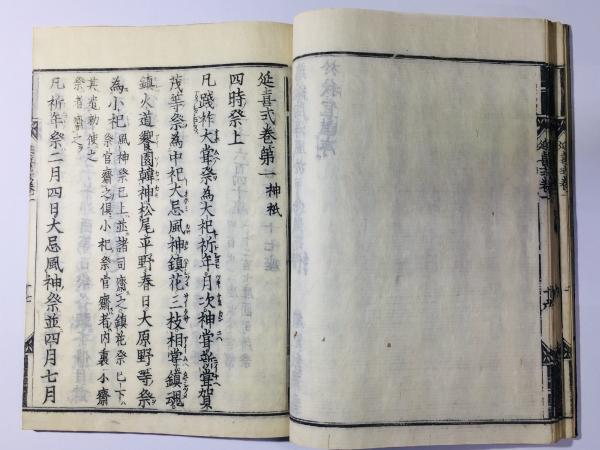 延喜式巻第一 神祇
四時祭上
凡踐祚大甞祭為大祀祈年月次神甞新甞賀
茂等祭為中祀大忌風神鎮花三枝相甞鎮魂
鎮火道饗園韓神松尾平野春日大原野等祭
為小祀
風神祭已上並諸司齋之鎮花祭已下
祭官齋之但小祀祭官齋者内裏小齋
其遣勅使之
祭者齋之
凡祈年祭二月四日大忌風神祭並四月七月
延喜式巻一